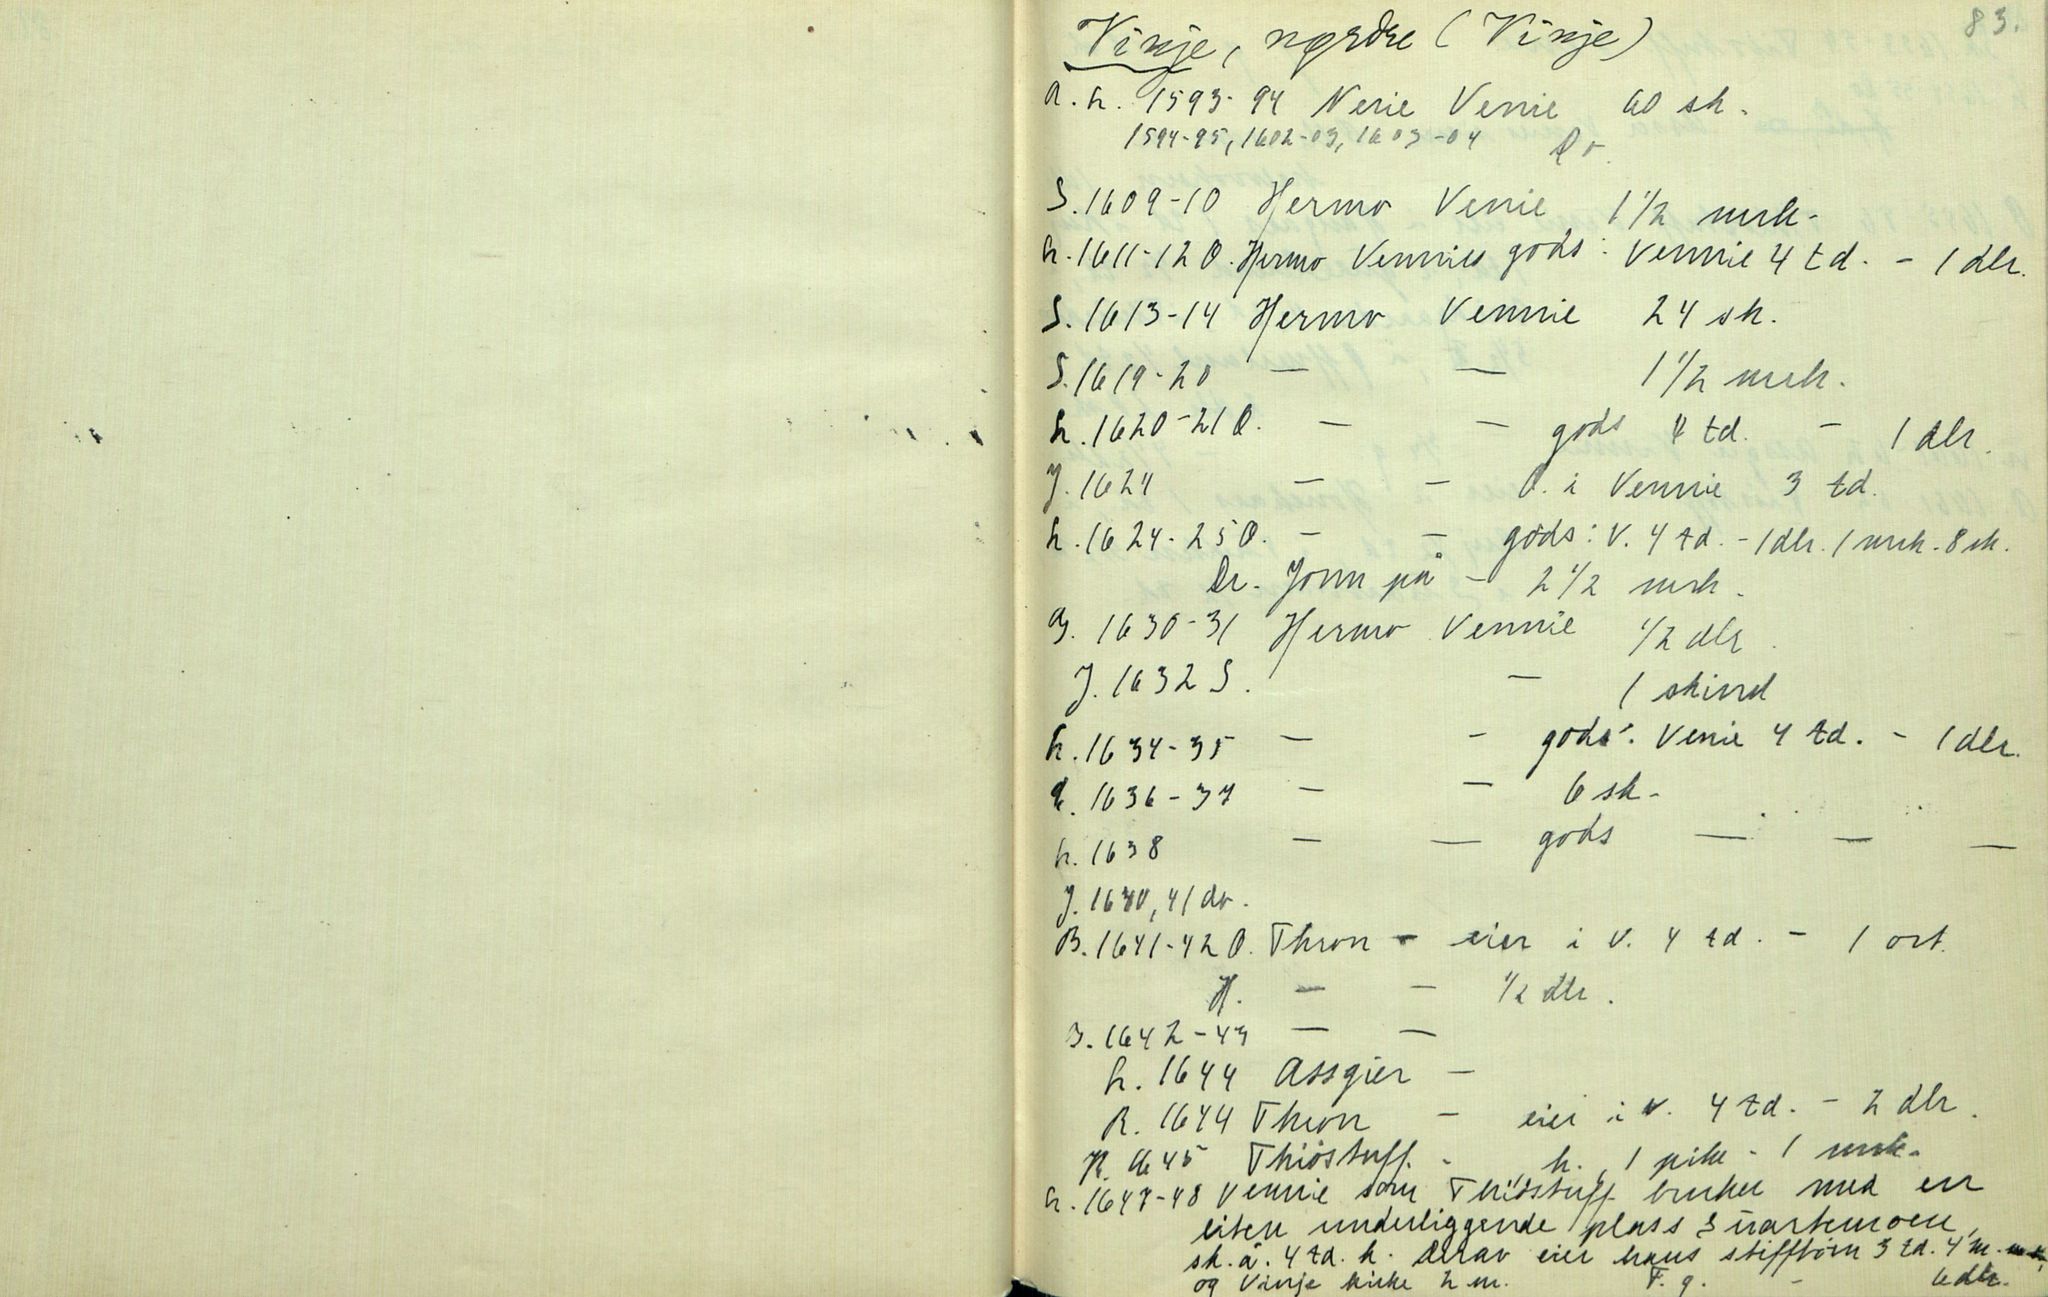 83.
Vinje, nordre (Vinje)
A. L. 1593-94 Nerie Venie 60 sk.
1594-95, 1602-03, 1603-04 Do.
S. 1609-10 Hermo Venie 1 1/2 mrk.
L. 1611-12 O. Hermo Vennies gods: Vennie 4 td. - 1 dlr.
S. 1613-14 Hermo Vennie 24 sk.
S. 1619-20 — — 1 1/2 mrk.
L. 1620-21 O. — — gods 4 td. — 1 dlr.
J. 1624 — — O. i Vennie 3 td.
L. 1624-25 O. — — gods: V. 4 td. - 1 dlr. 1 mrk. 8 sk.
Dr. Jonn på — 2 1/2 mrk.
1630-31 Hermo Vennie 1/2 dlr.
J. 1632 S. — 1 skind
L. 1634-35 — — gods: Venie 4 td. - 1 dlr.
1636-37 — — 6 sk.
L. 1638 — — gods — — —
J. 1640, 41 do.
B. 1641-42 O. Thron — eier i V. 4 td. - 1 ort.
H. — — 1/2 dlr.
1642-43 — —
L. 1644 Assgier —
R. 1644 Thron — eier i V. 4 td. - 2 dlr.
K. 1645 Thiostuff - h. 1 pike - 1 mrk.
L. 1647-48 Vennie som Thiostuff bruker med en
liten underliggende plass Suartemoen,
sk. a. 4 td. h. Derav eier hans stiffbørn 3 td. 4 m.
og Vinje kirke 2 m. F. g. - 6 dlr.